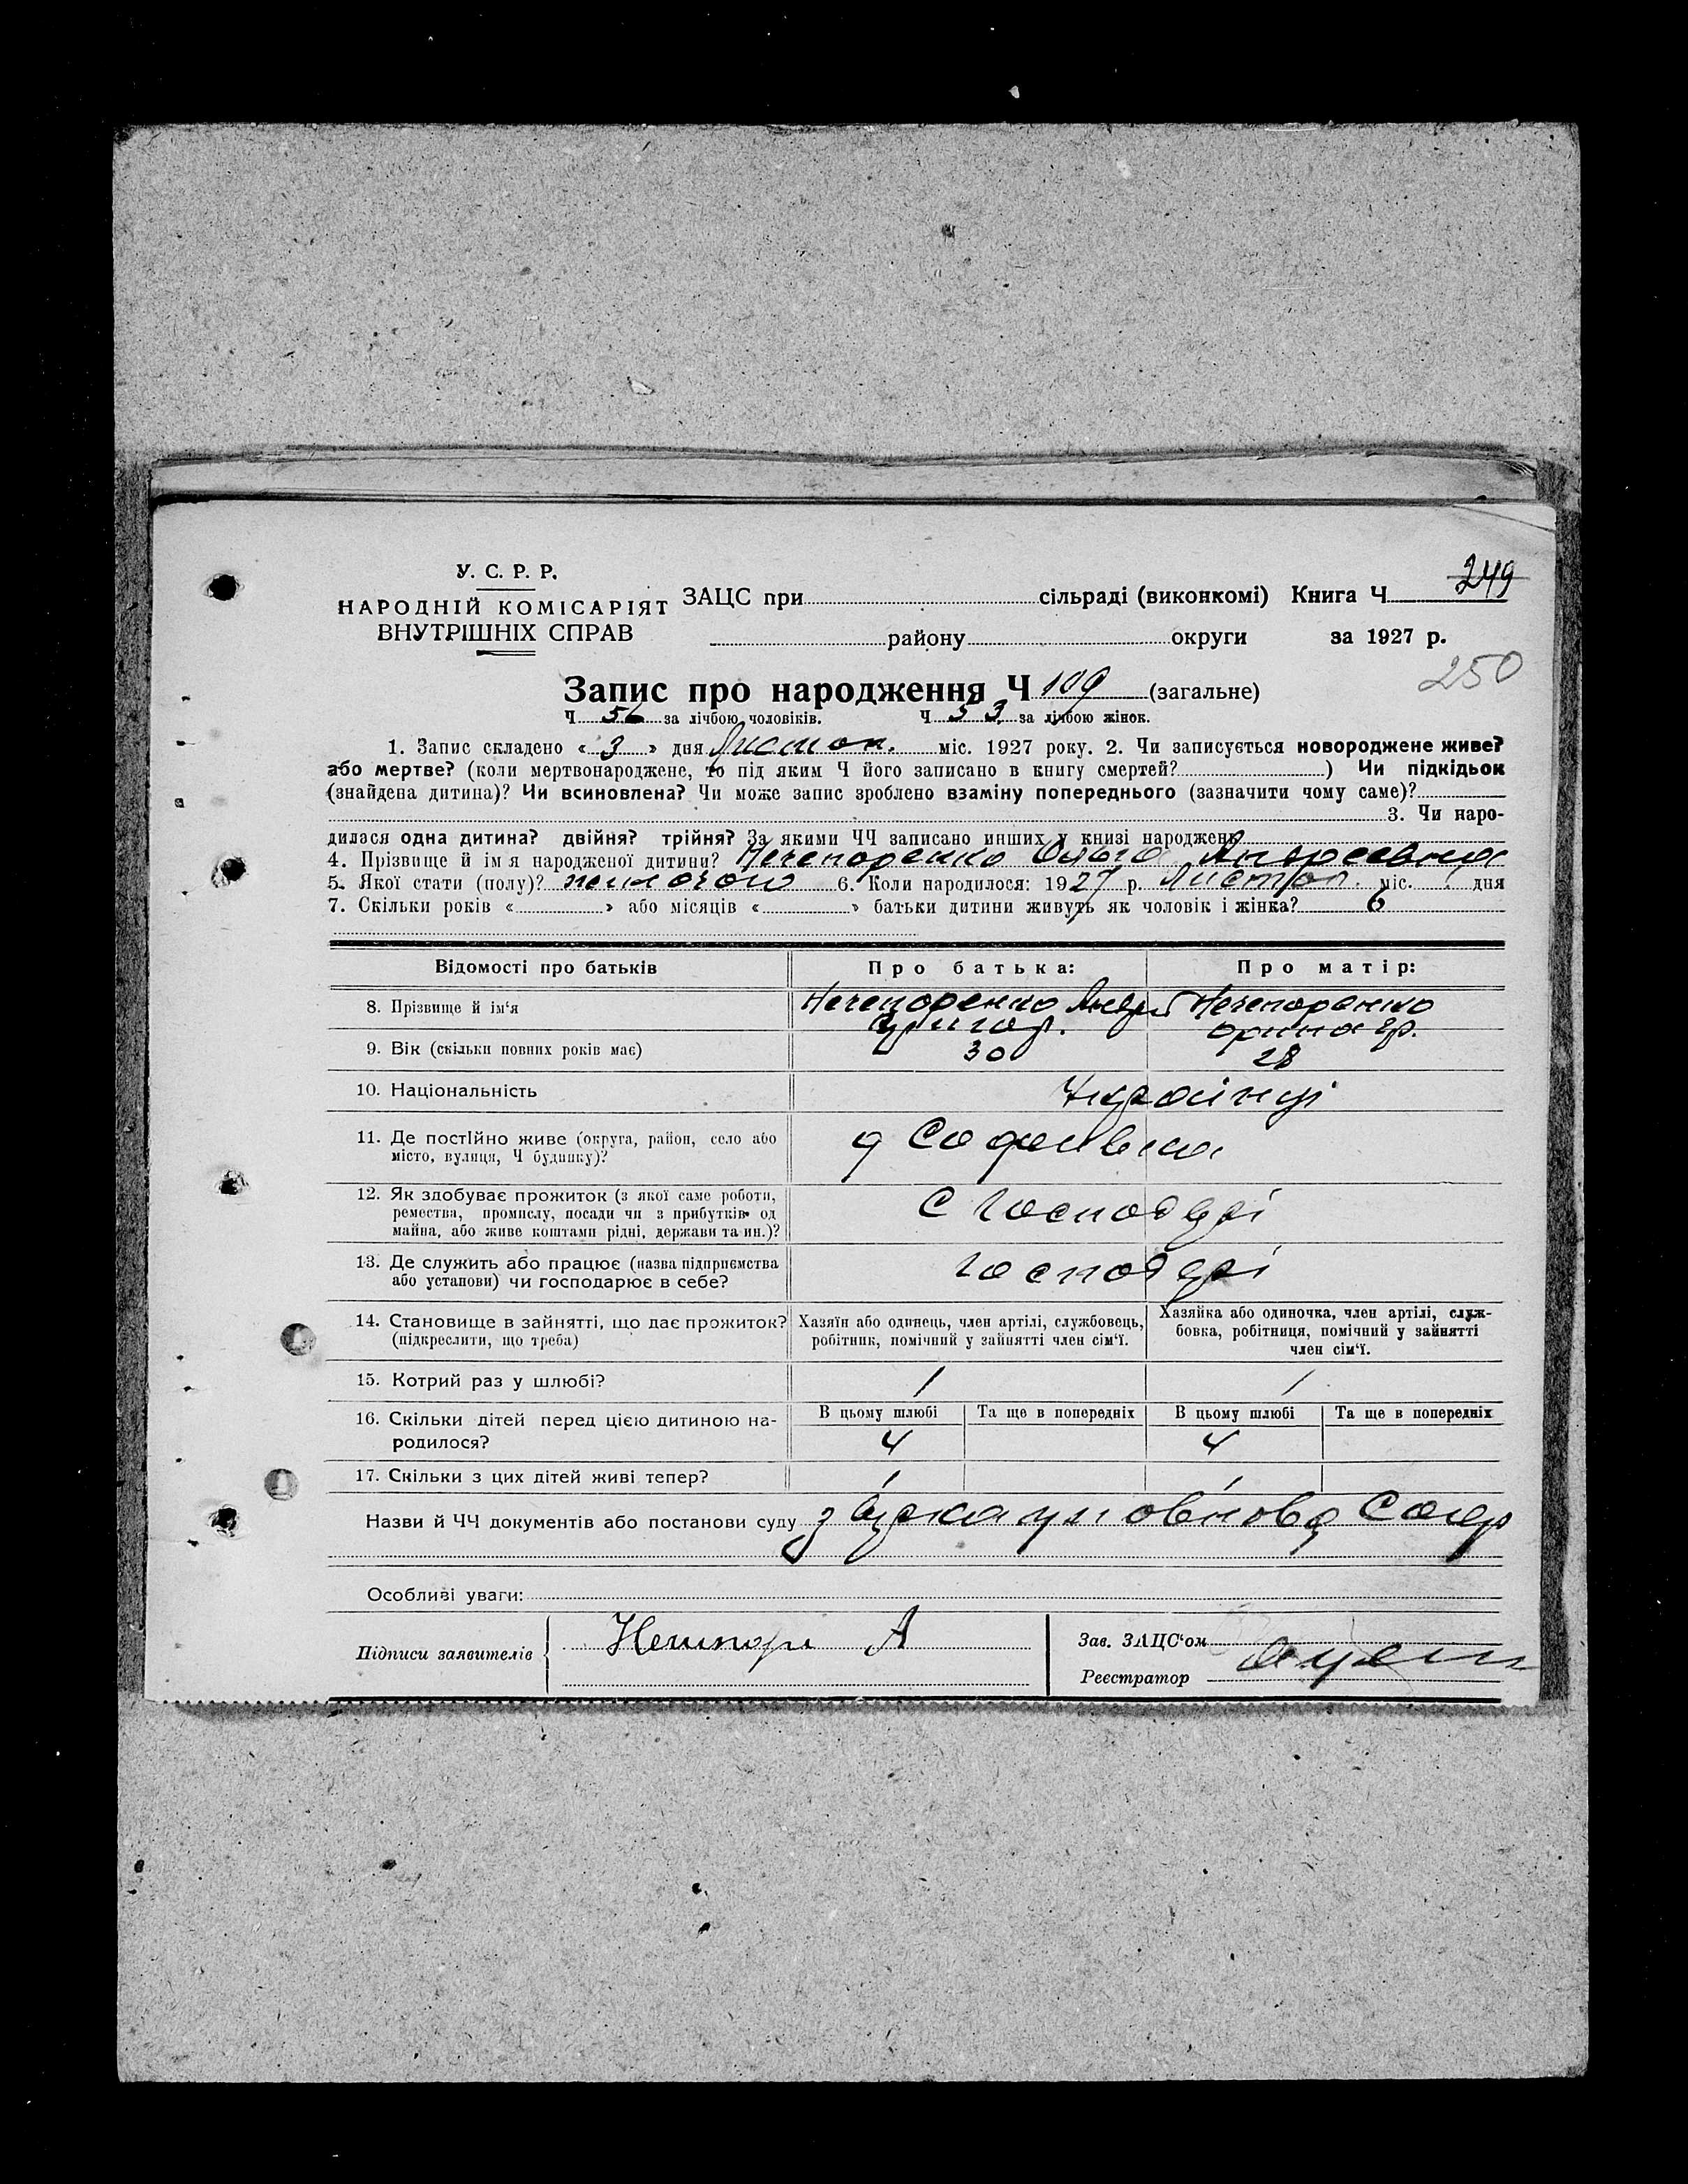 У. С. Р. Р.
НАРОДНІЙ КОМІСАРІЯТ
ВНУТРІШНІХ СПРАВ
ЗАЦС при сільраді (виконкомі) Книга Ч 249
району округи за 1927 р.
250
Запис про народження Ч 109 (загальне)
Ч 56 за лічбою чоловіків. Ч 53 за лічбою жінок.
1. Запис складено « 3 » дня Листоп. міс. 1927 року. 2. Чи записується новороджене живе?
або мертве? (коли мертвонароджене, то під яким Ч його записано в книгу смертей? ) Чи підкідьок
(знайдена дитина)? Чи всиновлена? Чи може запис зроблено взаміну попереднього (зазначити чому саме)?
3. Чи наро-
дилася одна дитина? двійня? трійня? За якими ЧЧ записано инших у книзі народжень
4. Прізвище й ім'я народженої дитини? Нечепоренко Ольга Андреевна
5. Якої стати (полу)? 6. Коли народилося: 1927 р. Листоп. міс. 1 дня
7. Скільки років « » або місяців « » батьки дитини живуть як чоловік і жінка? 6
Відомості про батьків Про батька: Про матір:
8. Прізвище й ім'я Нечепоренко Андрій Григор. Нечепоренко Орина Гр.
9. Вік (скільки повних років має) 30 28
10. Національність Українці
11. Де постійно живе (округа, район, село або
місто, вулиця, Ч будинку)? Софиевка
12. Як здобуває прожиток (з якої саме роботи,
ремества, промислу, посади чи з прибутків од
майна, або живе коштами рідні, держави та ин.)? С Господарі
13. Де служить або працює (назва підприємства
або установи) чи господарює в себе? Господарі
14. Становище в зайнятті, що дає прожиток?
(підкреслити, що треба)
Хазяїн або одинець, член артілі, службовець,
робітник, помічний у зайнятті член сім'ї.
Хазяйка або одиночка, член артілі, служ-
бовка, робітниця, помічний у зайнятті
член сім'ї.
15. Котрий раз у шлюбі? 1 1
16. Скільки дітей перед цією дитиною на-
родилося?
В цьому шлюбі Та ще в попередніх В цьому шлюбі Та ще в попередніх
4 4
17. Скільки з цих дітей живі тепер? 1 1
Назви й ЧЧ документів або постанови суду
Особливі уваги:
Підписи заявителів А
Зав. ЗАЦС'ом
Реєстратор